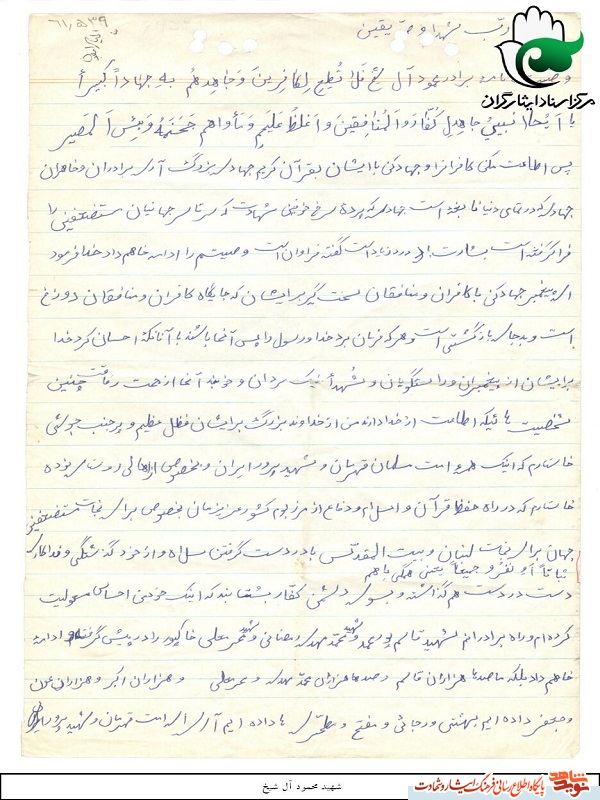 ۶۱٫۵۳۹
رب شهدا و صدیقین
مرکز اسناد ایثارگران
برادر محمود آل شیخ فَلا تُطِعِ الکافِرینَ وَ جاهِدهُم بِهِ جِهاداً کَبیراً
یا اَیُّهَا النَبیُّ جاهِدِ الکُفّارَ وَ المُنافِقینَ وَ اغلُظ عَلَیهِم وَ مَأواهُم جَهَنَّمُ وَ بِئسَ المَصیر
پس اطاعت مکن کافرانرا و جهاد کن با ایشان بقرآن کریم جهادی بزرگ آری برادران و خاهران
جهادیکه در تمامی دنیا است جهادیکه پرده سرخ خونین شهادت که سرتاسر جهانیان مستضعفین را
فرا گرفته است بشارت است گفته فراوان است وصیتم را ادامه خاهم داد خدا فرمود
ای پیغمبر جهاد کن با کافران و منافقان سخت گیر بر ایشان که جایگاه کافران و منافقان دوزخ
است و بد جای بازگشتی است و هر که فرمان برد خدا و رسول را پس آنها باشند با آنانکه احسان کرد خدا
بر ایشان از پیغمبران و راستگویان و شهدأ نیک مردان و خوبند آنها از جهت رفاقت چنین
شخصیت هائیکه اطاعت از خدا دارند من از خداوند بزرگ بر ایشان فضل عظیم و پر جنب جوشی
خاستارم که اینک همه امت مسلمان قهرمان و شهید پرور ایران و بخصوص از اهالی
خاستارم که در راه حفظ قرآن و اسلام و دفاع از مرز بوم کشور عزیزمان بخصوص برای نجات مستضعفین
جهان برای نجات لبنان و بیت المقدس با در دست گرفتن سلاح و از خود گذشتگی و فداکاری
اَو انفُرُو جَمیعاً یعنی همگی با هم
دست در دست هم گذاشته و بسوی دشمن کفار بشتابند که اینک خودمن احساس مسعولیت
کرده ام و راه برادرانم شهید قاسم پور محمد و شهید محمد مهدی رمضانی و شهید عمر علی خاکپور را در پیش گرفته ام و ادامه
خاهم داد بلکه ما صدها هزاران قاسم و صدها هزاران محمد مهدی و عمر علی و هزاران اکبر و هزاران عون
و جعفر داده ایم بهشتی و رجائی و مفتح و مطهری ها داده ایم آری ای امت قهرمان و شهید پرور ایران
شهید محمود آل شیخ
نوید شاهد
پایگاه اطلاع رسانی فرهنگ ایثار و شهادت